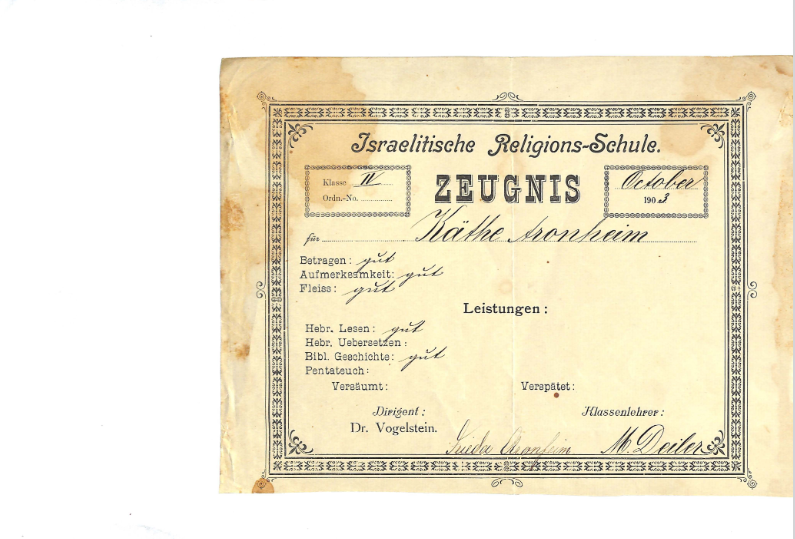 Israelitische Religions-Schule.
Klasse IV
Ordn.-No.
ZEUGNIS
October
1903
für Käthe Aronheim
Betragen: gut
Aufmerksamkeit: gut
Fleiss: gut
Leistungen:
Hebr. Lesen: gut
Hebr. Uebersetzen:
Bibl. Geschichte: gut
Pentateuch:
Versäumt: Verspätet:
Dirigent: Klassenlehrer:
Dr. Vogelstein.
Aronheim M.